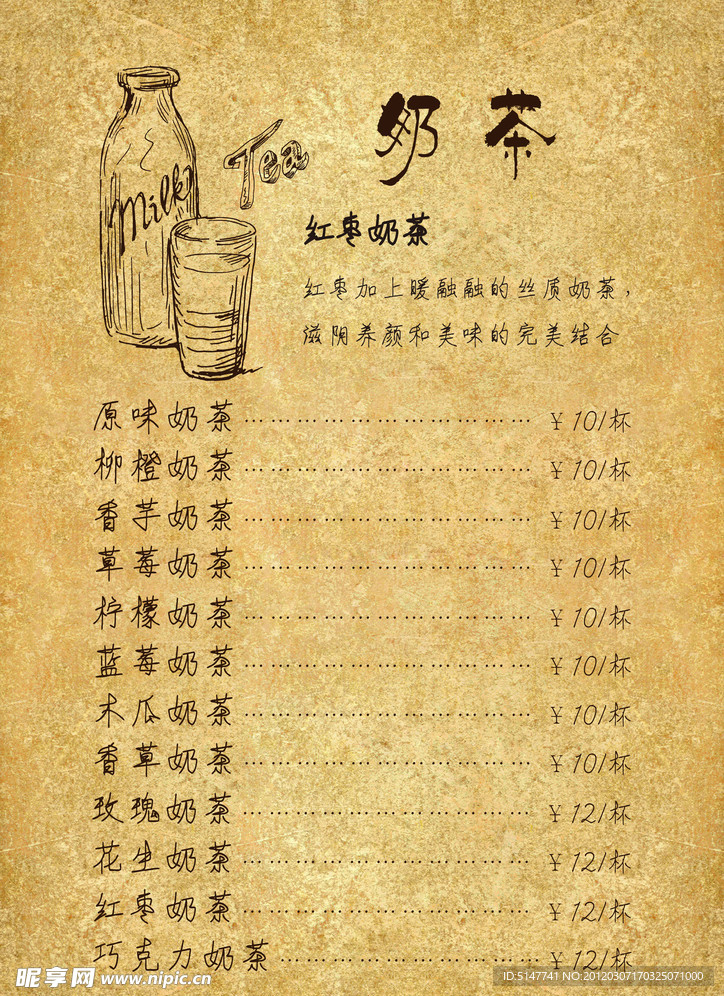 奶茶
Milk
Tea
红枣奶茶
红枣加上暖融融的丝质奶茶，
滋阴养颜和美味的完美结合
原味奶茶……………………………¥10/杯
柳橙奶茶……………………………¥10/杯
香芋奶茶……………………………¥10/杯
草莓奶茶……………………………¥10/杯
柠檬奶茶……………………………¥10/杯
蓝莓奶茶……………………………¥10/杯
木瓜奶茶……………………………¥10/杯
香草奶茶……………………………¥10/杯
玫瑰奶茶……………………………¥12/杯
花生奶茶……………………………¥12/杯
红枣奶茶……………………………¥12/杯
巧克力奶茶…………………………¥12/杯
昵享网 www.nipic.cn
ID:5147741 NO:20120307170325071000